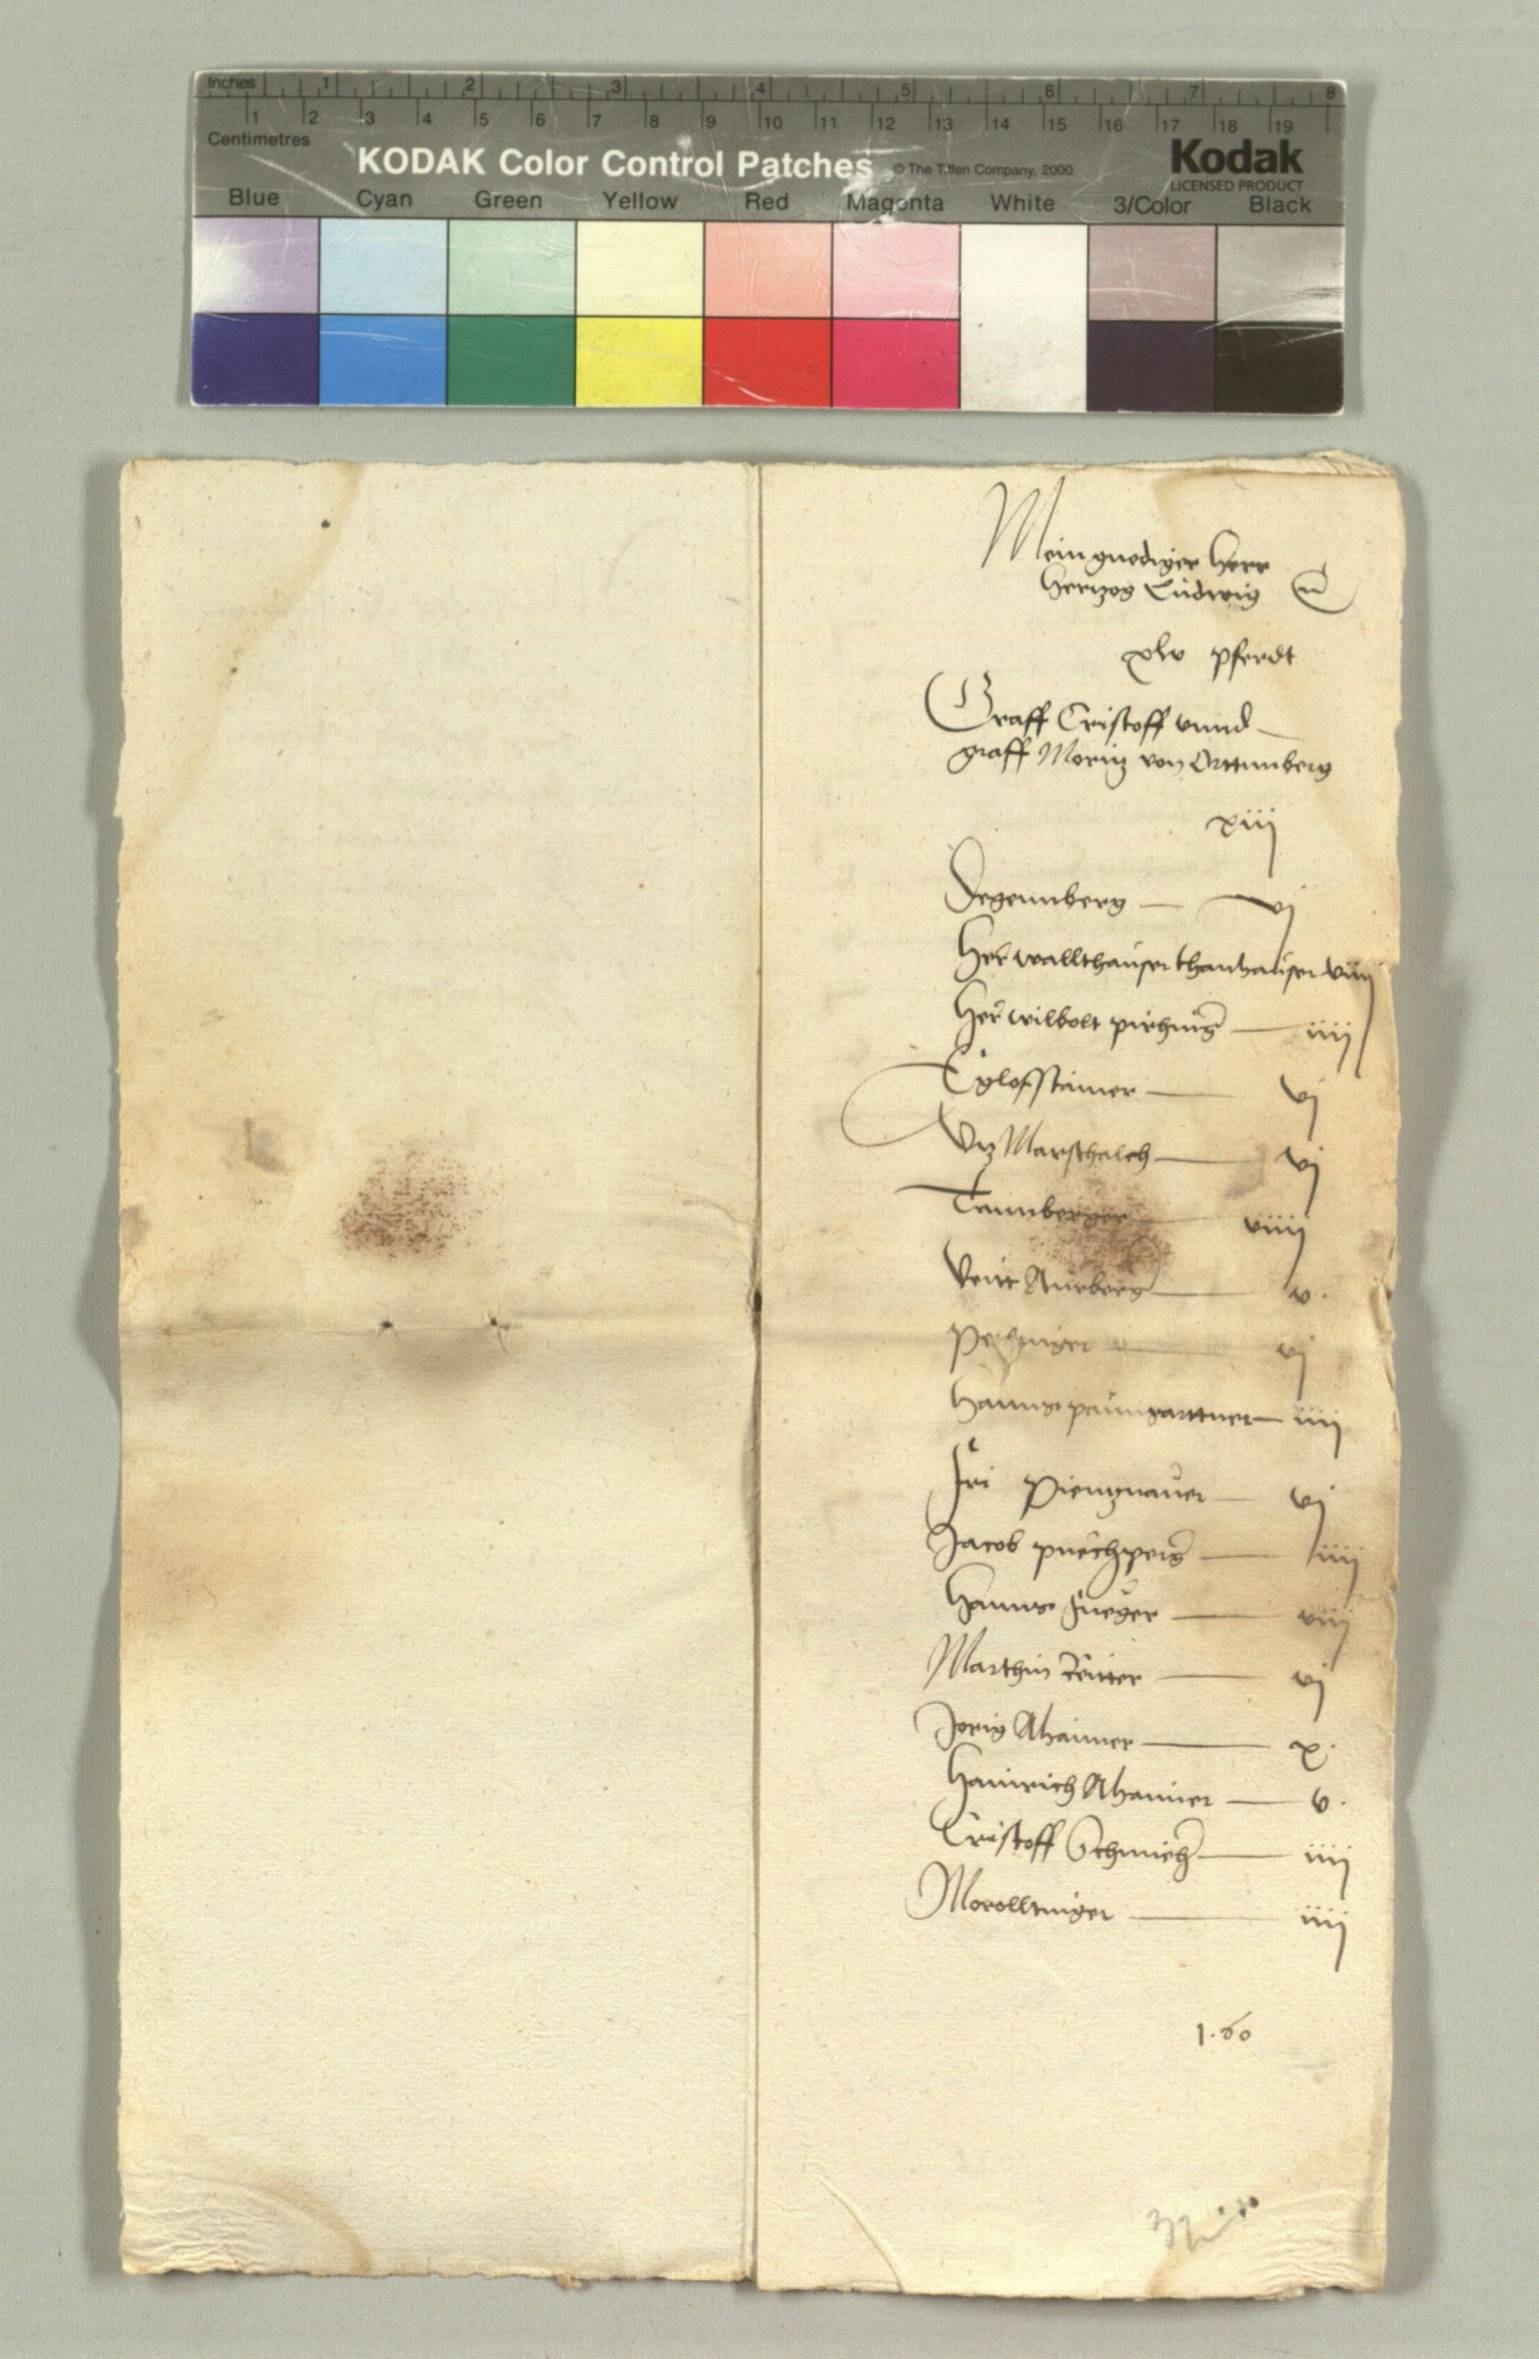 Inches 1 2 3 4 5 6 7 8
1 2 3 4 5 6 7 8 9 10 11 12 13 14 15 16 17 18 19
Centimetres
KODAK Color Control Patches © The Tiffen Company, 2000 Kodak
LICENSED PRODUCT
Blue Cyan Green Yellow Red Magenta White 3/Color Black
Mein gnediger herr
hertzog Ludwig
xlv pferdt
Graff Cristoff vnnd
graff Moritz von Orttnnberg
xiii
Degennberg — vj
Her wallthauser thanhauser viiij
Her wilbolt pirhing — iiij
Eglofstainer — vj
Vtz Marschalch — vj
Tannberger — viiij
Veitt Aurberg — v.
vj
Hanns paumgarttner — iiij
Pienzenauer — vj
Jacob puechperg — iiij
Hanns — viij
Marthin Reitter — vj
Jorig Ahaimer — x.
Hainrich Ahaimer — v.
Cristoff Schmich — iiij
Morolltinger — iiij
1.60